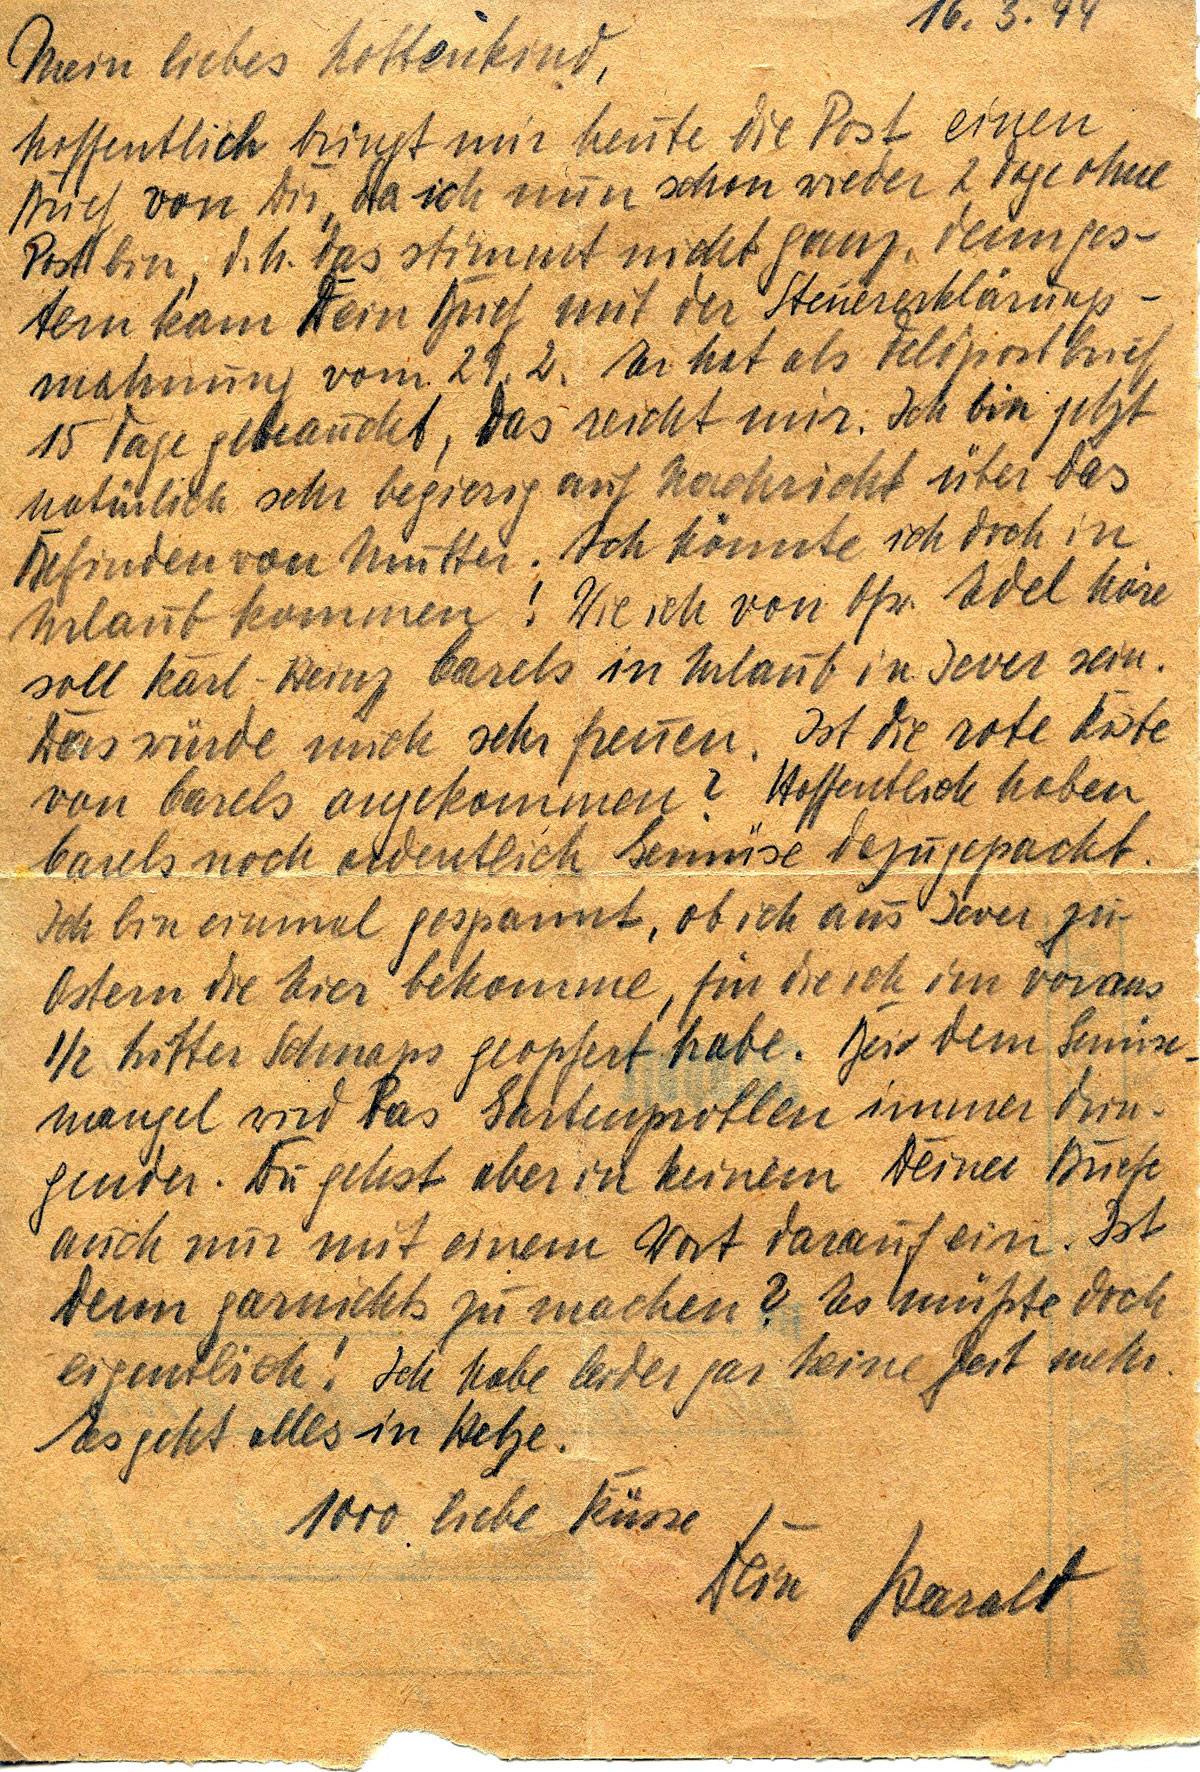 16. 3. 44
Mein liebes Lottenkind,
hoffentlich bringt mir heute die Post einen
Brief von Dir, da ich nun schon wieder 2 Tage ohne
Post bin, d.h. das stimmt nicht ganz, denn ges-
tern kam Dein Brief mit der Steuererklärungs-
mahnung vom 29. 2. Er hat als Feldpostbrief
15 Tage gebraucht, das reicht mir. Ich bin jetzt
natürlich sehr begierig auf Nachricht über das
Befinden von Mutter. Ich könnte ich doch in
Urlaub kommen! Wie ich von Ofw. Edel höre
soll Karl-Heinz Carels in Urlaub in Jever sein.
Das würde mich sehr freuen. Ist die rote Kiste
von Carels angekommen? Hoffentlich haben
Carels noch ordentlich Gemüse dazugepackt.
Ich bin einmal gespannt, ob ich aus Jever zu
Ostern die Eier bekomme, für die ich im voraus
1/2 Litter Schnaps geopfert habe. Bei dem Gemüse-
mangel wird das Gartenproblem immer drin-
gender. Du gehst aber in keinem Deiner Briefe
auch nur mit einem Wort darauf ein. Ist
denn garnichts zu machen? Es müßte doch
eigentlich! Ich habe leider gar keine Zeit mehr.
Es geht alles in Hetze.
1000 liebe Küsse
Dein Harald